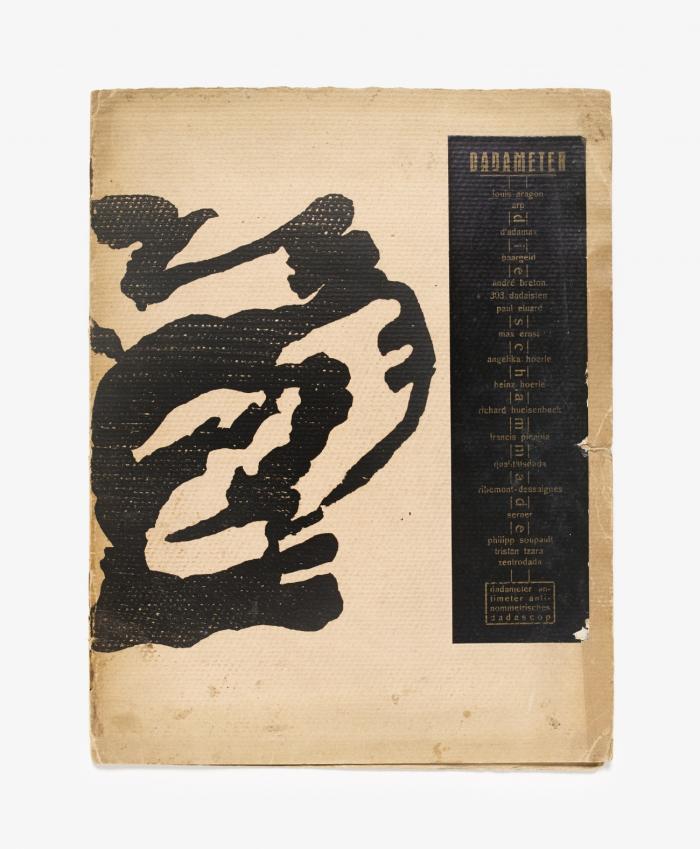 DADAMETER
louis aragon
arp
d
d'adamax
i
baargeld
e
andré breton
303 dadaisten
paul eluard
s
max ernst
c
angelika hoerle
h
heinz hoerle
a
richard huelsenbeck
m
francis picabia
m
a
ribemont-dessaignes
d
serner
e
philipp soupault
tristan tzara
zentrodada
dadameter an-
timeter anti-
nommetrisches
dadascop